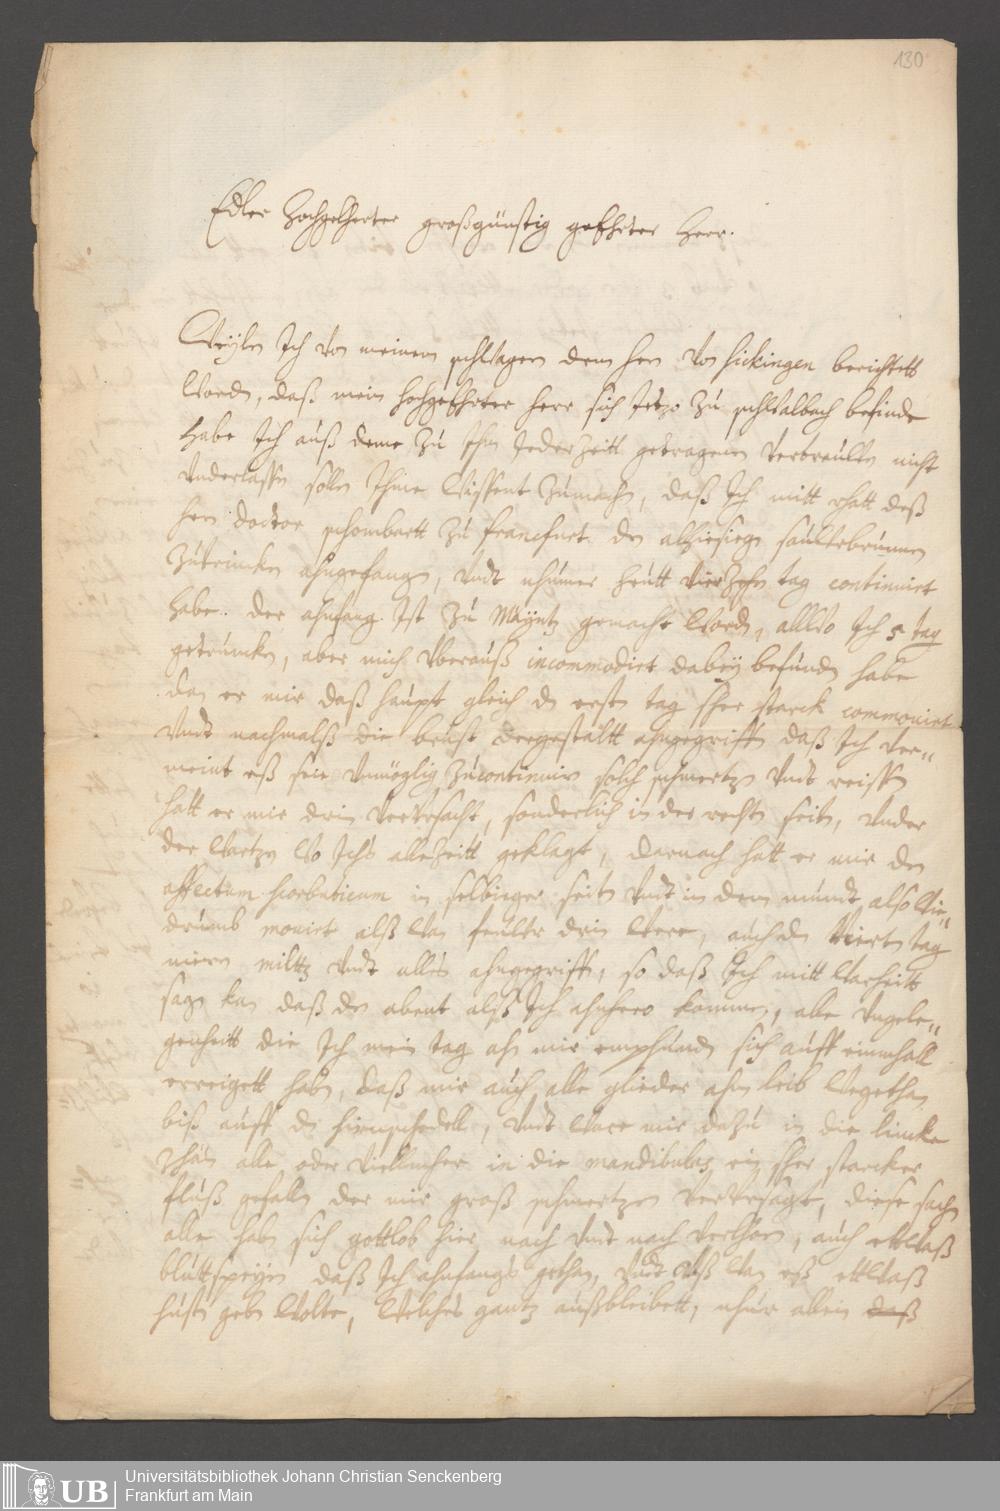 130
Edler Hochgelherter großgünstig geEhrter Herr.
Weyln Ich von meinem schwagern dem hern von Sickingen berichtett
word, daß mein hochgeEhrter herr sich Jetzo zu schwalbach befinde
Habe Ich auß deme zu Ihm Jederzeitt getragenem vertrauwen nicht
underlassen solln Ihme wissent zumachn, daß Ich mitt rhatt deß
hern doctor schombartt zu franckfurt den alhiesiegn saurbrunnen
zutrincken ahngefangen, undt nhumer heutt vierzehn tag continuirt
habe. der ahnfang Ist zu Mäyntz gemacht wordn, allwo Ich 5 tag
getruncken, aber mich uberauß incommodirt dabey befunden habe
dan er mir daß haupt gleich dn ersten tag sher starck commovirt
undt nachmalß die brust dergestaltt ahngegriffn daß Ich ver„
meint eß seie unmöglig zucontinuirn solch schmertzn undt reissen
hatt er mir drin verursacht, sonderlich in der rechten seiten, under
der wartzn wo Ichs allezeitt geklagt, darnach hatt er mir den
affectum scorbuticum in selbieger seitn undt in dem mundt also wie„
drumb movirt alß wan feuwer drin were, auch dn viertn tag
miern miltz undt alles ahngegriffn, so daß Ich mitt warheitt
sagn kan daß dn abent alß Ich ahnhero kommen, alle ungele„
genheitt die Ich mein tag ahn mir emphundn sich auff einmhall
erreigett habn, daß mir auch alle glieder ahm leib wegethan
biß auff dn hirnschedell, undt ware mir dazu in die lincke
zhän alle oder viellmher in die mandibulas ein sher starcker
fluß gefalln der mir groß schmertzen verursagt, diese sachn
alle habn sich gottlob hier nach undt nach verlhorn, auch ettwaß
bluttspeyen daß Ich ahnfangs gethan, undt alß wan eß ettwaß
husten gebn wolte, welches gantz außbleibett, nhur allein daß
Universitätsbibliothek Johann Christian Senckenberg
UB Frankfurt am Main